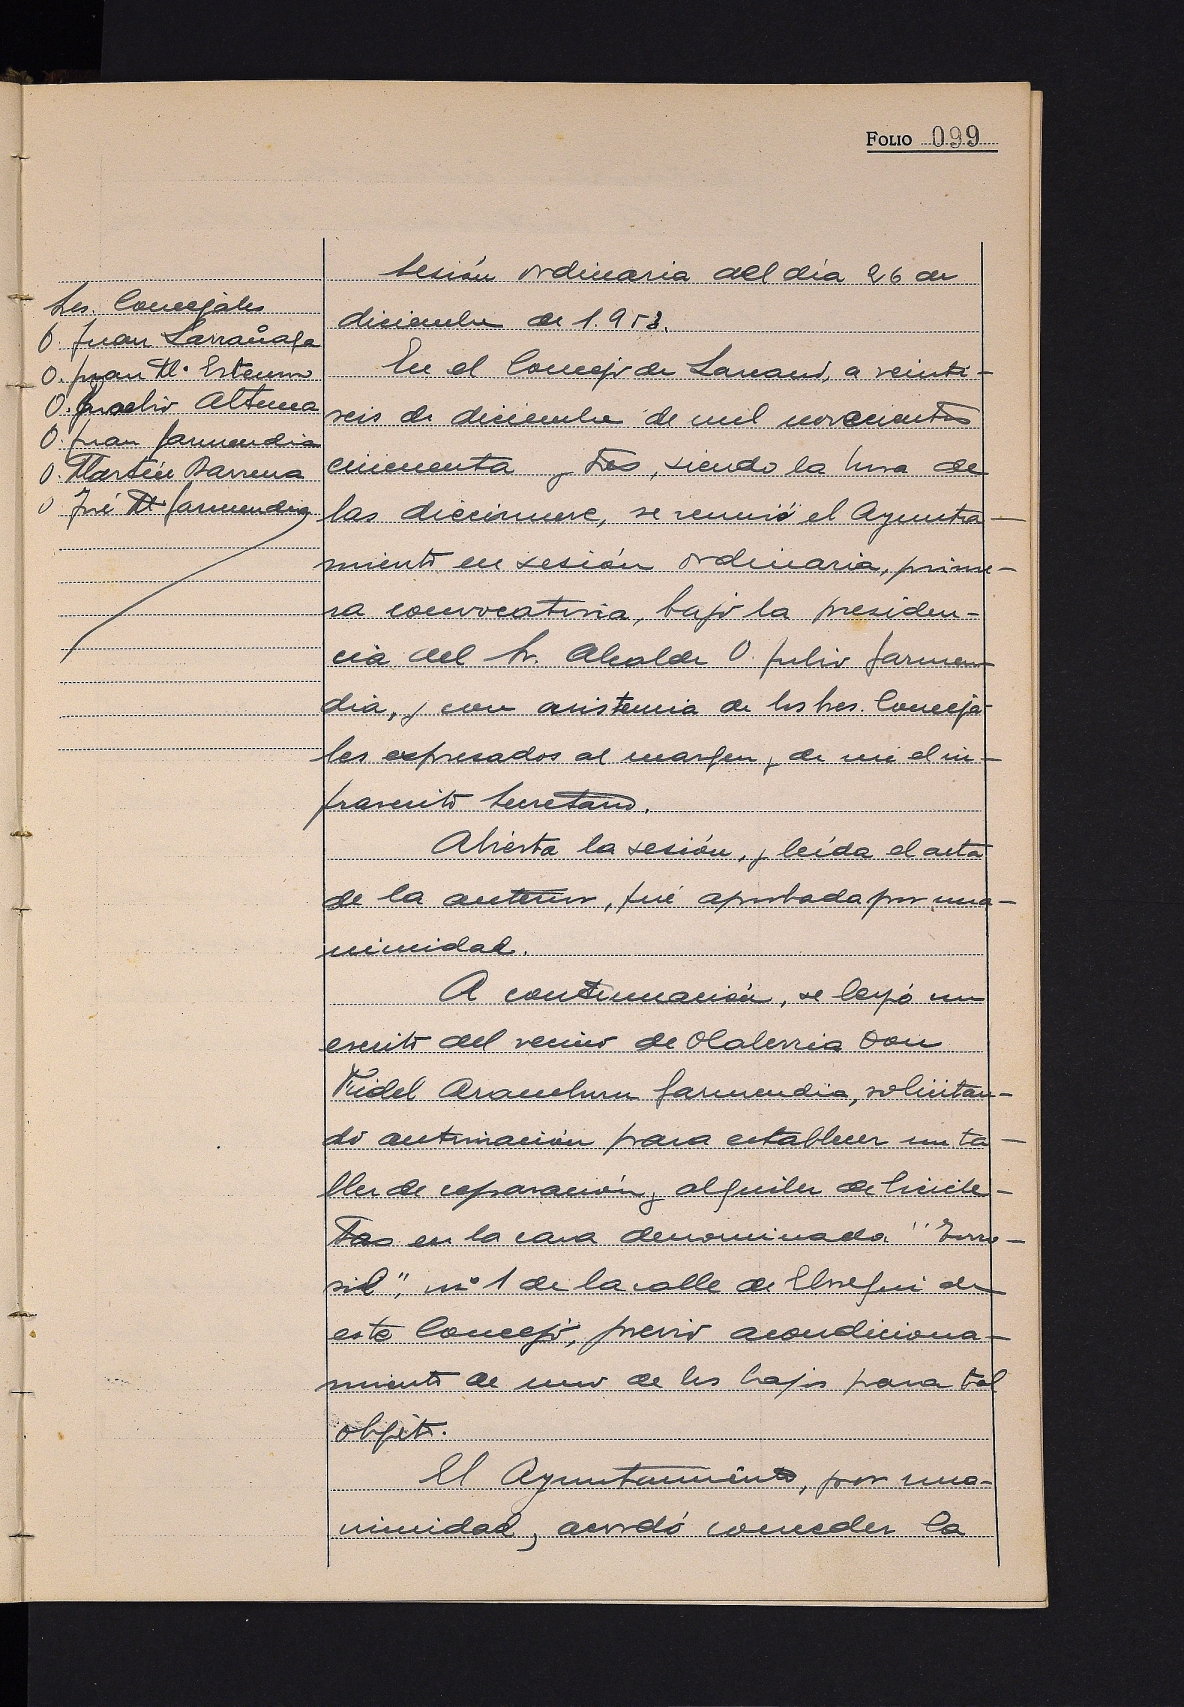 FOLIO 099
Sres. Concejales
D. Juan Larrañaga
D. Juan Mª Estensoro
D. Altuna
D. Juan Garmendia
D. Martín Barrena
D. José Mª Garmendia
Sesión ordinaria del día 26 de
diciembre de 1.953.
En el Concejo de Lazcano, a veinti-
seis de diciembre de mil novecientos
cincuenta y tres, siendo la hora de
las diecinueve, se reunió el Ayunta-
miento en sesión ordinaria, prime-
ra convocatoria, bajo la presiden-
cia del Sr. Alcalde D. Julio Garmen
dia, y con asistencia de los Sres. Conceja
les expresados al margen y de mi el in-
frascrito Secretario.
Abierta la sesión, y leída el acta
de la anterior, fué aprobada por una-
nimidad.
A continuación, se leyó un
escrito del vecino de Olaberria Don
Fidel Aramburu Garmendia, solicitan-
do autorización para establecer un ta-
ller de reparación y alquiler de bicicle-
tas en la casa denominada "
nº 1 de la calle de Elosegui de
este Concejo, previo acondiciona-
miento de uno de los bajos para tal
objeto.
El Ayuntamiento, por una-
nimidad, acordó conceder la